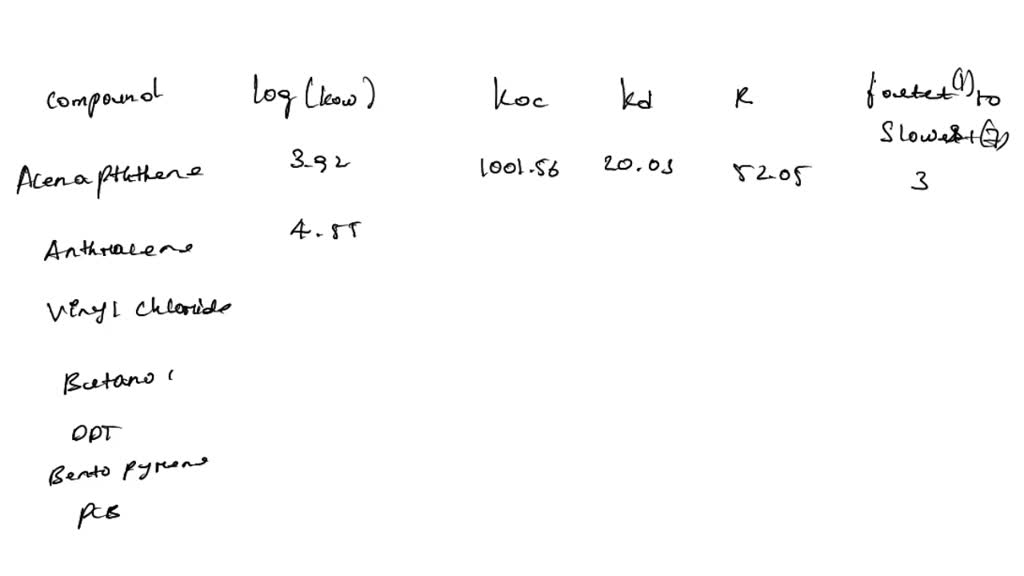 compound log(kow) koc kd R fastest(1) to
slowest(7)
Acenapththene 3.92 1001.56 20.03 52.05 3
Anthracene 4.55
Vinyl chloride
Butano
DDT
Bento pyrene
PCB